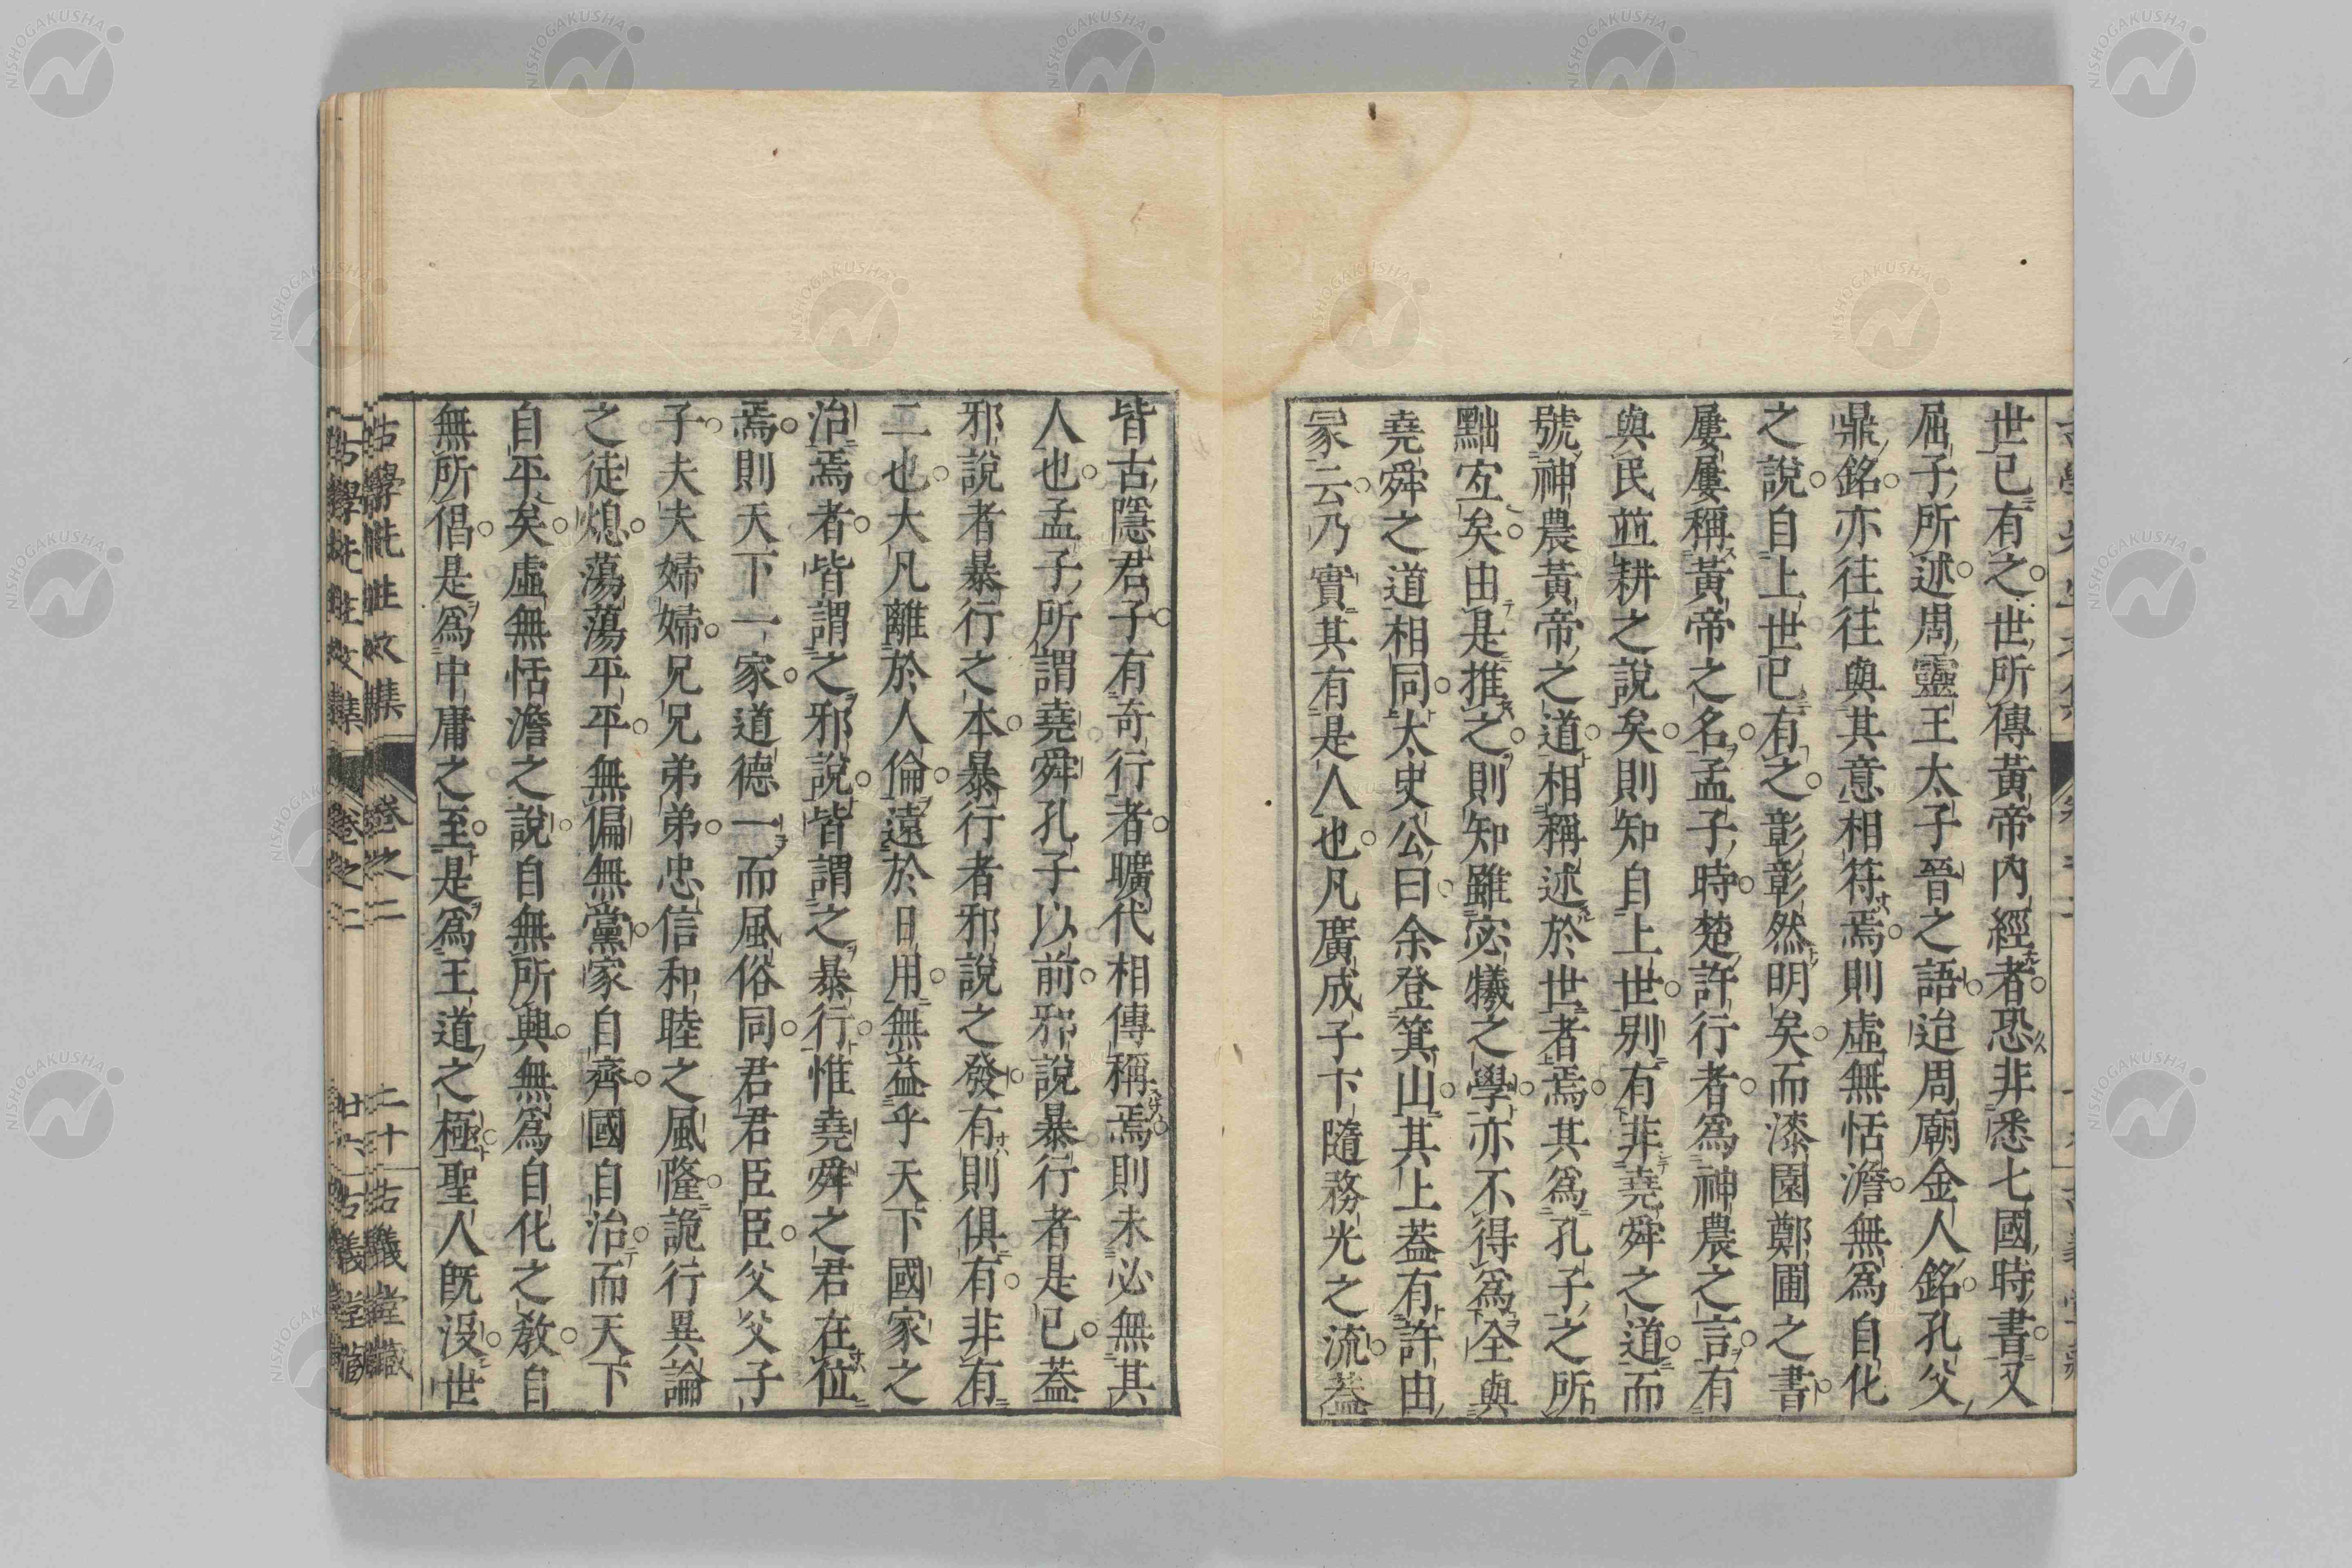 世已有之世所傳黃帝內經者恐非悉七國時書又
屈子所述周靈王太子晉之語迨周廟金人銘孔父
鼎銘亦往往與其意相符焉則虛無恬澹無爲自化
之說自上世已有之彰彰然明矣而漆園鄭圃之書
屢屢稱黃帝之名孟子時楚許行者爲神農之言有
與民並耕之說矣則知自上世別有非堯舜之道而
號神農黃帝之道相稱述於世者焉其爲孔子之所
黜宐矣由是推之則知雖宓犧之學亦不得爲全與
堯舜之道相同太史公曰余登箕山其上蓋有許由
冢云乃實其有是人也凡廣成子卞隨務光之流蓋
皆古隱君子有奇行者曠代相傳稱焉則未必無其
人也孟子所謂堯舜孔子以前邪說暴行者是已蓋
邪說者暴行之本暴行者邪說之發有則俱有非有
二也大凡離於人倫遠於日用無益乎天下國家之
治焉者皆謂之邪說皆謂之暴行惟堯舜之君在位
焉則天下一家道德一而風俗同君君臣臣父父子
子夫夫婦婦兄兄弟弟忠信和睦之風隆詭行異論
之徒熄蕩蕩平平無偏無黨家自齊國自治而天下
自平矣虛無恬澹之說自無所興無爲自化之教自
無所倡是爲中庸之至是爲王道之極聖人既沒世
古學先生文集 卷之二 二十 古義堂藏
古學先生文集 卷之二 廿六 古義堂藏
NISHOGAKUSHA